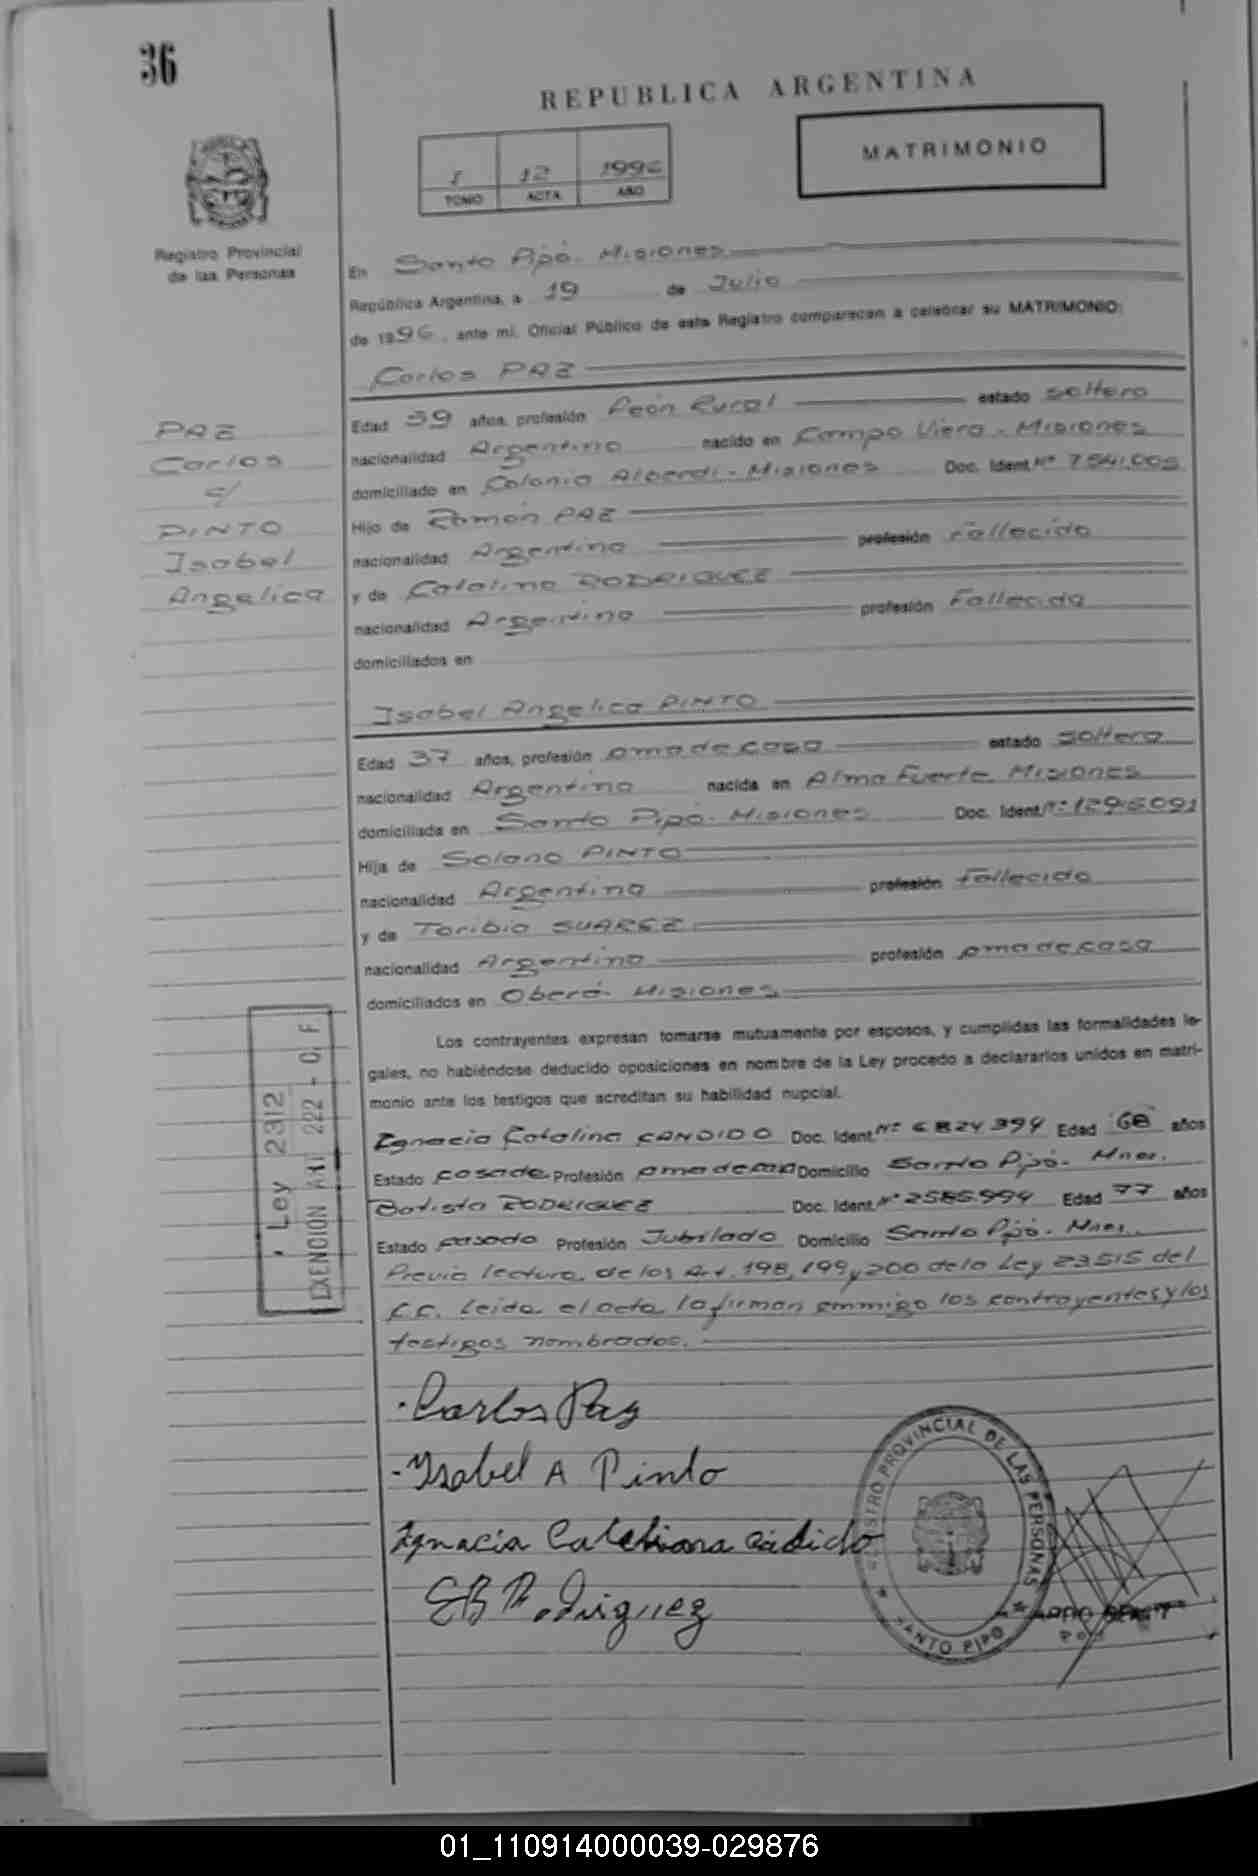 36
REPUBLICA ARGENTINA
MATRIMONIO
1 12 1996
TOMO ACTA AÑO
Registro Provincial
de las Personas
En Santo Pipó. Misiones
República Argentina, a 19 de Julio
de 1996, ante mí, Oficial Público de este Registro comparecen a celebrar su MATRIMONIO:
Carlos PAZ
Edad 39 años, profesión Peón Rural estado soltero
nacionalidad Argentina nacido en Campo Viera - Misiones
domiciliado en Colonia Alberdi - Misiones Doc. Ident. Nº
Hijo de Ramón PAZ
nacionalidad Argentina profesión Fallecido
y de Catalina RODRIGUEZ
nacionalidad Argentina profesión Fallecida
domiciliados en
PAZ
Carlos
c/
PINTO
Isabel
Angelica
Isabel Angelica PINTO
Edad 37 años, profesión ama de casa estado soltera
nacionalidad Argentina nacida en Alma Fuerte. Misiones
domiciliada en Santo Pipó. Misiones Doc. Ident. Nº
Hija de Solano PINTO
nacionalidad Argentina profesión fallecido
y de Toribia SUAREZ
nacionalidad Argentina profesión ama de casa
domiciliados en Oberá. Misiones
Los contrayentes expresan tomarse mutuamente por esposos, y cumplidas las formalidades le-
gales, no habiéndose deducido oposiciones en nombre de la Ley procedo a declararlos unidos en matri-
monio ante los testigos que acreditan su habilidad nupcial.
Ignacia Catalina CANDIDO Doc. Ident. Nº 6824394 Edad años
Estado casada Profesión ama de casa Domicilio Santo Pipó. Mnes.
Batista RODRIGUEZ Doc. Ident. Nº 2585.994 Edad 77 años
Estado casado Profesión Jubilado Domicilio Santo Pipó. Mnes.
Previa lectura de los Art. 198, 199 y 200 de la Ley 23.515 del
C.C. Leida el acta, la firman conmigo los contrayentes y los
testigos nombrados.
Ley 2312
EXENCION Art 222 - O. F.
Carlos Paz
Isabel A Pinto
Ignacia Catalina Cádido
EB Rodriguez
REGISTRO PROVINCIAL DE LAS PERSONAS
SANTO PIPO
01_110914000039-029876